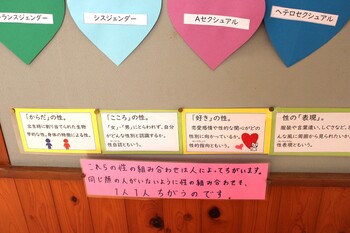 ランスジェンダー
シスジェンダー
Aセクシュアル
ヘテロセクシュアル
「からだ」の性。
出生時に割り当てられた生物
学的な性。身体の特徴による性。
「こころ」の性。
「女」・「男」にとらわれず、自分
がどんな性別と認識するか。
性自認ともいう。
「好き」の性。
恋愛感情や性的な関心がどの
性別に向かっているか。
性的指向ともいう。
性の「表現」。
服装や言葉遣い、しぐさなど、
んな風に周囲から見られたいか
性表現ともいう。
これらの性の組み合わせは人によってちがいます。
同じ顔の人がいないように性の組み合わせも、
1人1人ちがうのです。